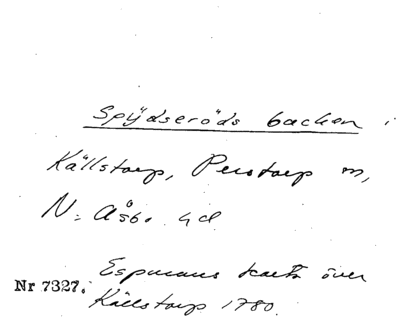 Spÿdseröds backen i
Källstorp, Perstorp m,
N. Åsbo hd
Espmans karta över
Nr 7327. Källstorp 1780.